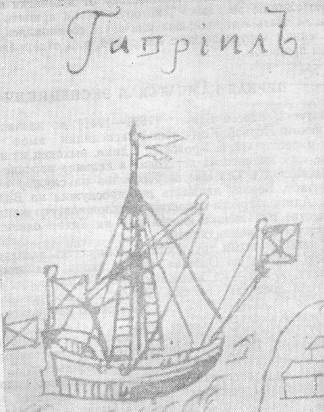 Гавріилъ